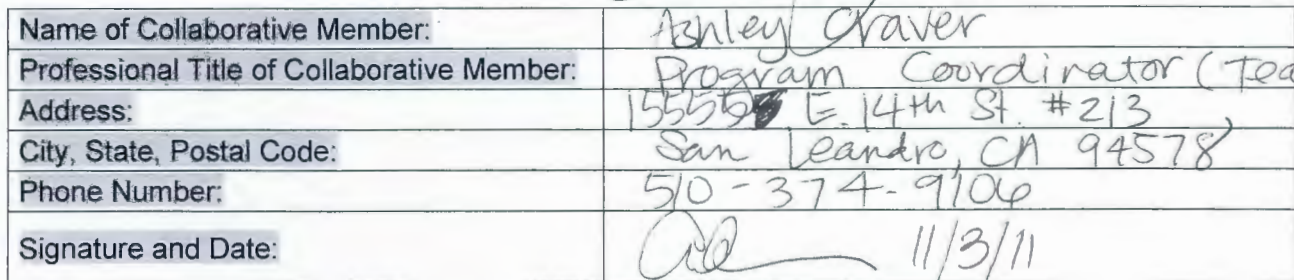 Name of Collaborative Member: Ashley Craver
Professional Title of Collaborative Member: Program Coordinator (Tea
Address: 15555 E. 14th St. #213,
City, State, Postal Code: San Leandro, CA 94578
Phone Number: 510-374-9106
Signature and Date: 11/3/11